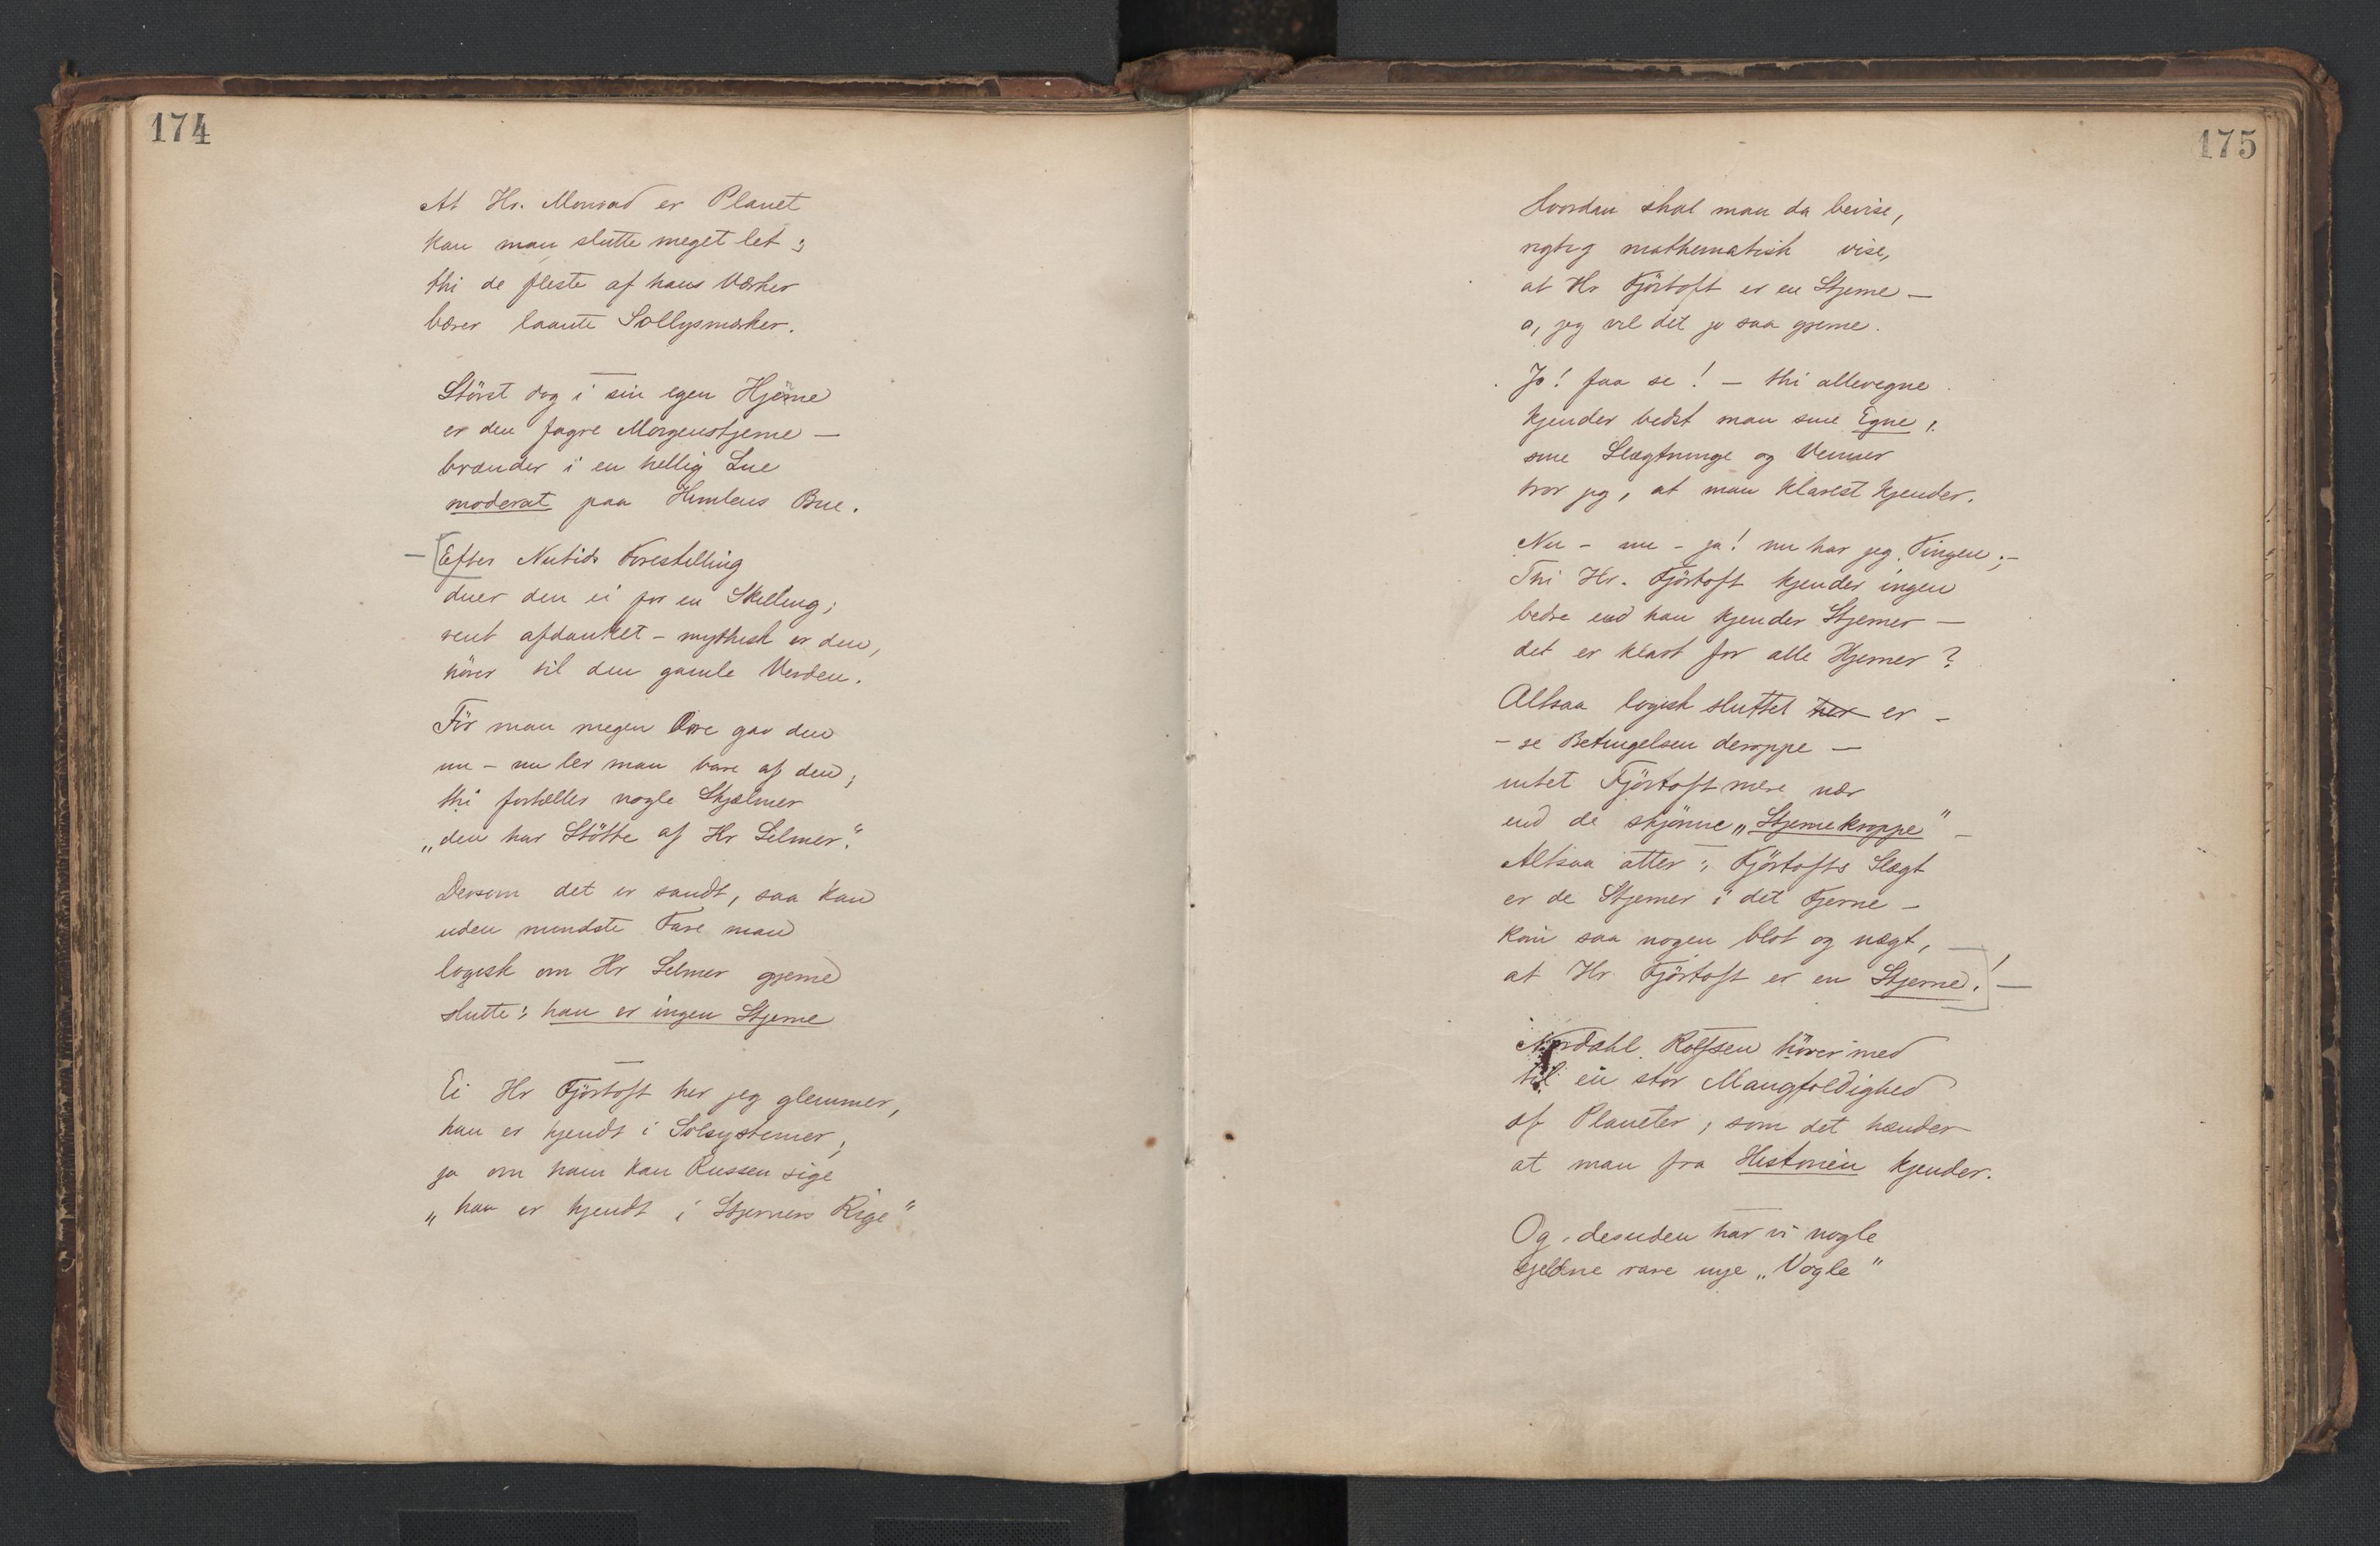 174
At Hr. Monrad er Planet
kan man slutte meget let :
thi de fleste af hans Værker
bærer laante Sollysmærker.
Störst dog i sin egen Hjerne
er den fagre Morgenstjerne —
brænder i en hellig Lue
moderat paa Himlens Bue.
— [Efter Nutids Forestilling
duer den ei for en Skilling;
rent afdanket - mythisk er den,
hörer til den gamle Verden.
För man megen Ære gav den
nu - nu ler man bare af den;
thi fortæller nogle Skjælmer
„den har Stötte af Hr Selmer."
Dersom det er sandt, saa kan
uden mindste Fare man
logisk om Hr Selmer gjerne
slutte : han er ingen Stjerne
Ei Hr Fjörtoft her jeg glemmer,
han er kjendt i Solsystemer,
ja om ham kan Russen sige
„han er kjendt i Stjerners Rige"
175
Hvordan skal man da bevise,
rigtig mathematisk vise,
at Hr Fjörtoft er en Stjerne —
a, jeg vil det jo saa gjerne.
Jo! faa se! — thi allevegne
kjender bedst man sine Egne,
sine Slægtninge og Venner
tror jeg, at man klarest kjender.
Nu - nu - ja! nu har jeg Tingen;-
Thi Hr. Fjörtoft kjender ingen
bedre end han kjender Stjerner —
det er klart for alle Hjerner?
Altsaa logisk sluttet her er -
- se Betingelsen deroppe —
intet Fjörtoft mere nær
end de skjönne „Stjernekroppe" -
Altsaa atter : Fjörtofts Slægt
er de Stjerner i det Fjerne -
kom saa nogen blot og nægt, —
at Hr. Fjörtoft er en Stjerne.] ! —
Nordahl Rolfsen hörer med
til en stor Mangfoldighed
af Planeter, som det hænder
at man fra Historien kjender.
Og desuden har vi nogle
sjeldne rare nye „Vogle"